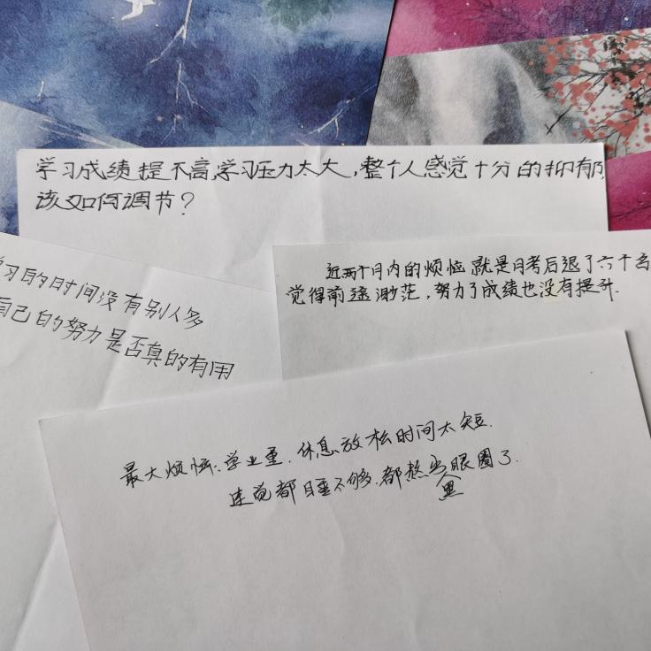 学习成绩提不高,学习压力太大,整个人感觉十分的抑郁
该如何调节?
习的时间没有别人多
自己的努力是否真的有用
近两个月内的烦恼就是月考后退了六十名
觉得前途渺茫,努力了成绩也没有提升.
最大烦恼:学业重.休息放松时间太短.
连觉都睡不够.都熬出黑眼圈了.